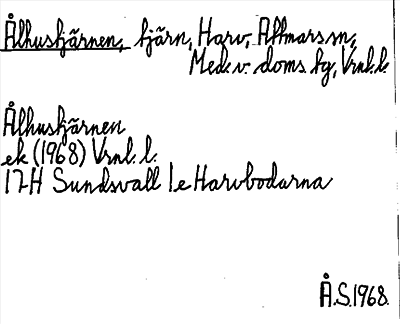 Ålhustjärnen, tjärn, Harv, Attmars sn,
Med.v. doms. hg, Vrnl. l.
Ålhustjärnen
ek (1968) Vrnl. l.
17H Sundsvall 1e Harvbodarna
Å.S. 1968.